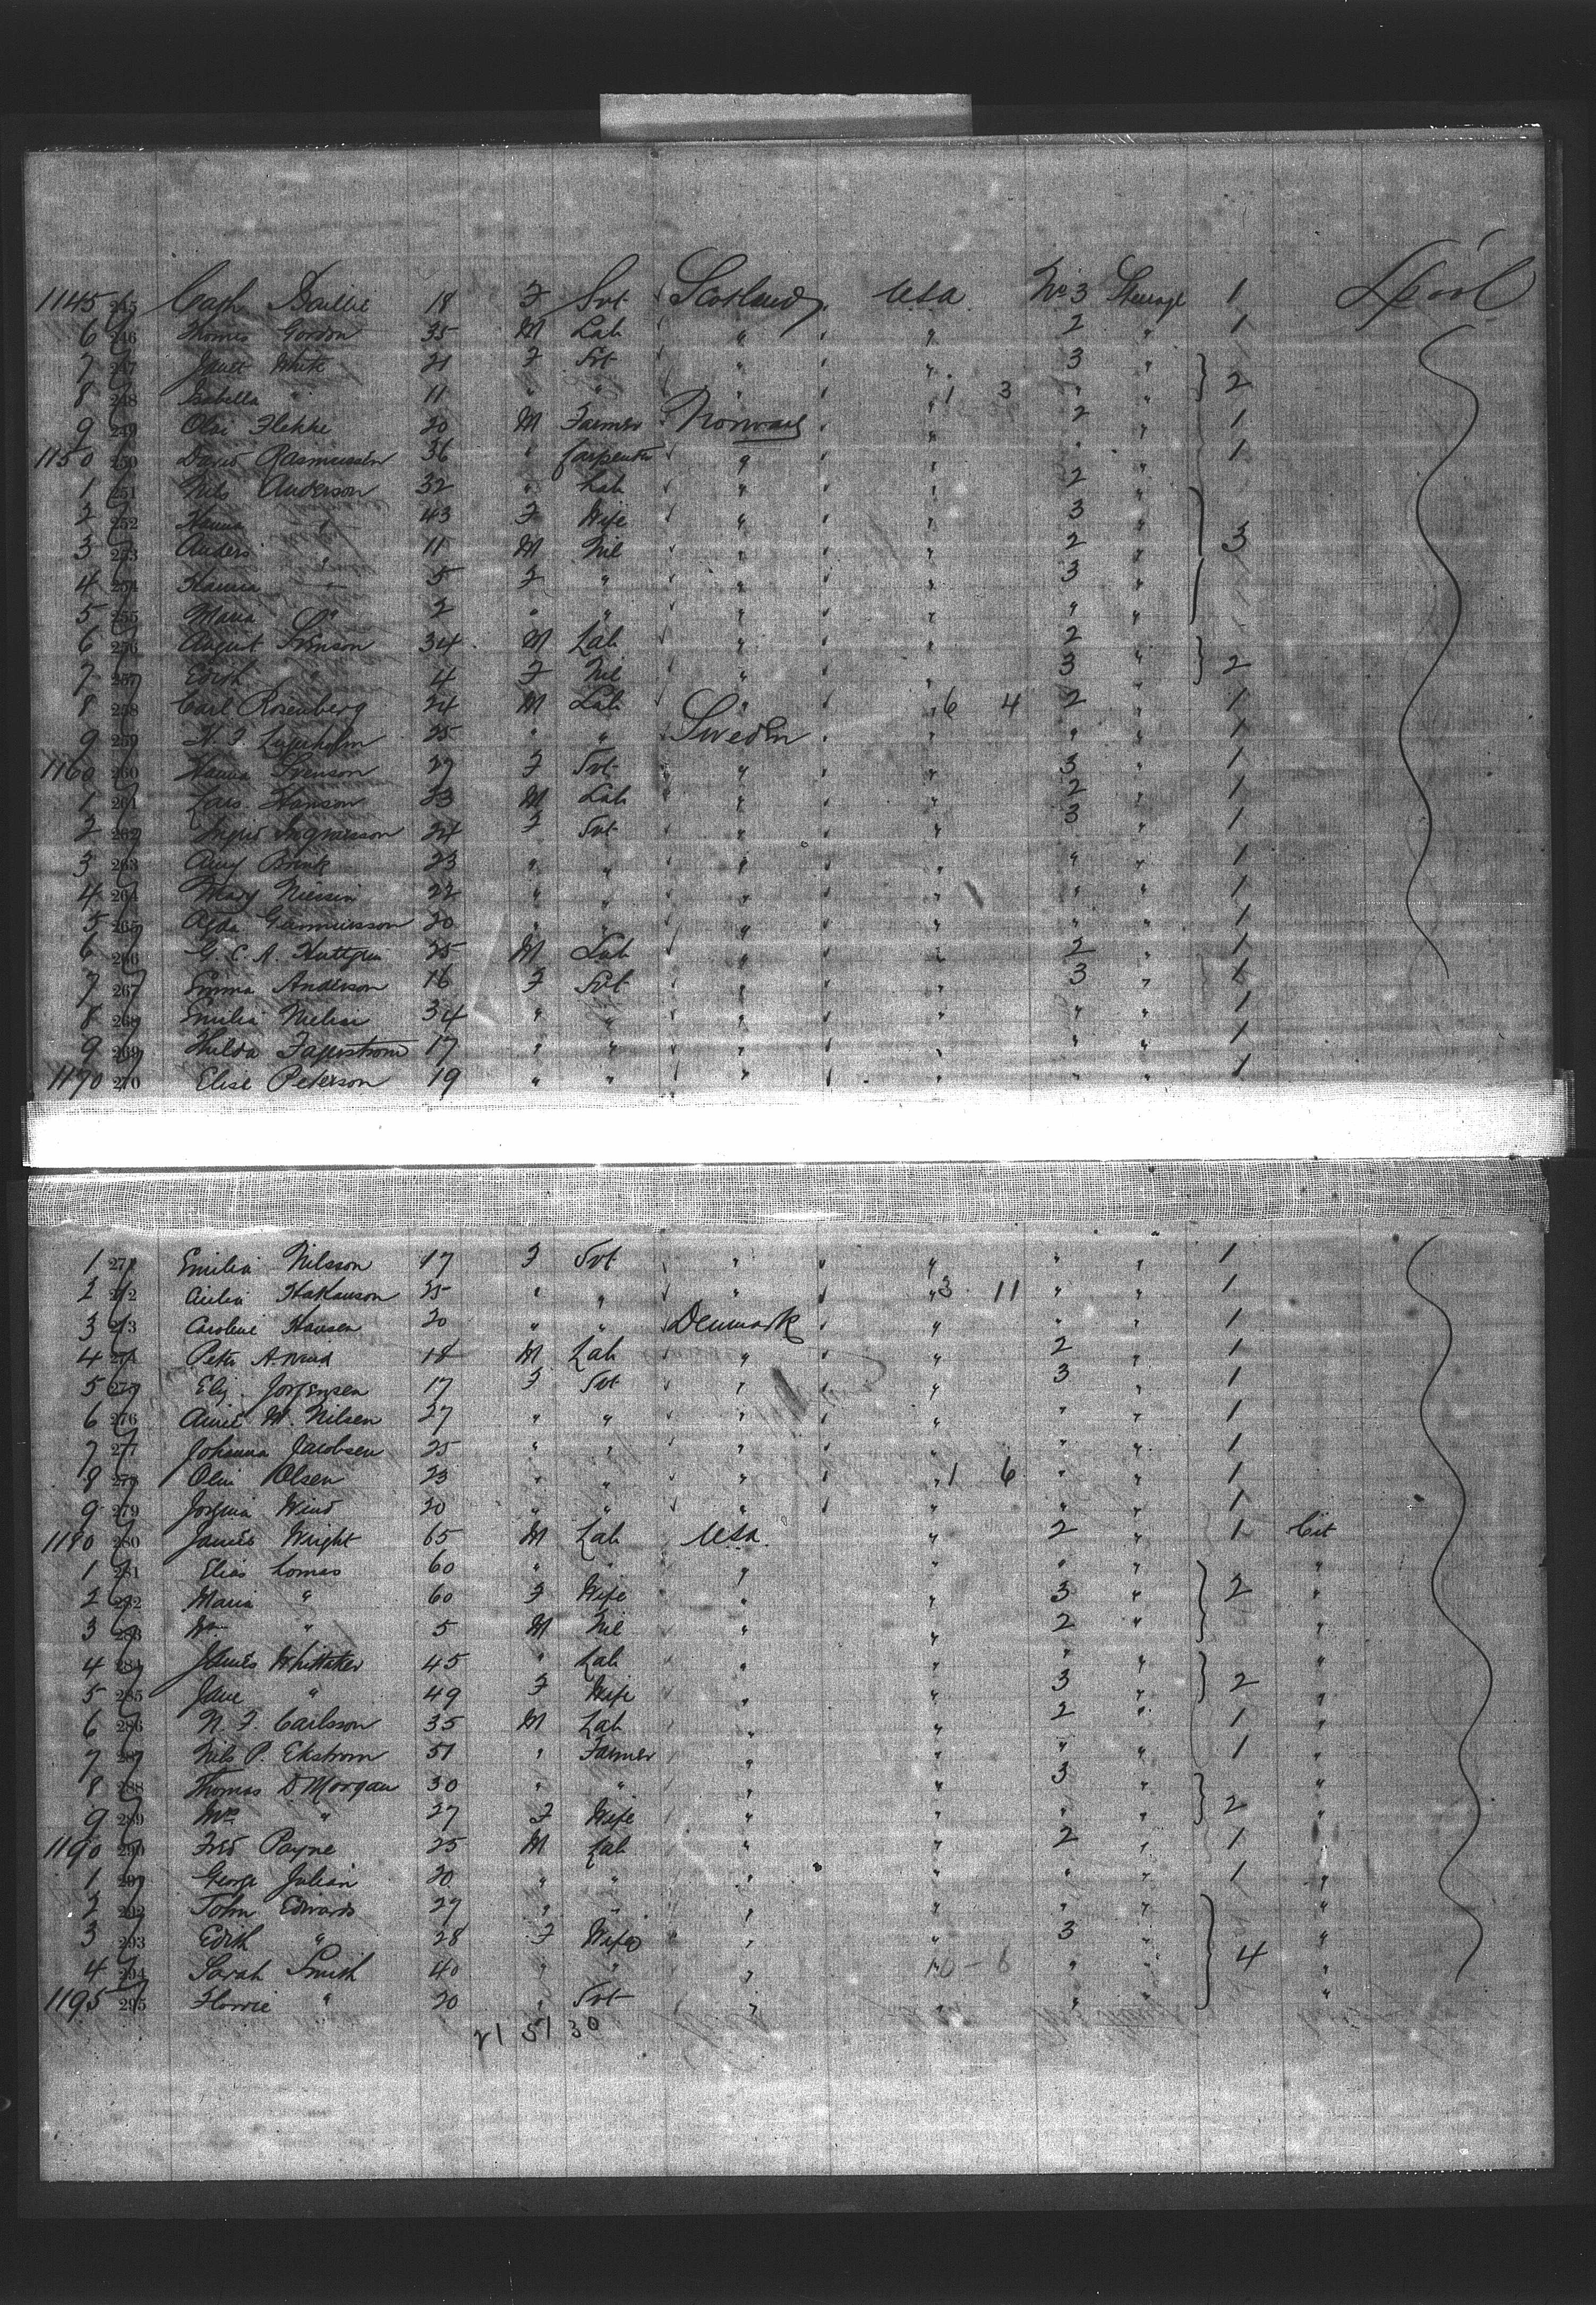 1145 245 Cath Baillie 18 F Svt Scotland USA No 3 Steerage 1 L'pool
6 246 Thomas Gordon 35 M Lab " " 2 " 1
7 247 Janet White 21 F Svt " " 3 "
8 248 Isabella " 11 " " " " 1 3 " " 2
9 249 Olai Flekke 20 M Farmer Norway " 2 " 1
1150 250 David Rasmussen 36 " Carpenter " " " " 1
1 251 Nils Anderson 32 " Lab " " 2 "
2 252 Hanna " 43 F Wife " " 3 "
3 253 Anders " 11 M Nil " " 2 " 3
4 254 Hanna " 5 F " " " 3 "
5 255 Maria " 2 " " " " " "
6 256 August Svenson 34 M Lab " " 2 "
7 257 Edith " 4 F Nil " " 3 " 2
8 258 Carl Rosenberg 24 M Lab " " 6 4 2 " 1
9 259 25 " " Sweden " " " 1
1160 260 Hanna Svenson 27 F Svt " " 3 " 1
1 261 Lars Hanson 23 M Lab " " 2 " 1
2 262 Ingrid 24 F Svt " " 3 " 1
3 263 Amy Brink 23 " " " " " " 1
4 264 Mary 22 " " " " " " 1
5 265 Agda 20 " " " " " " 1
6 266 G. C. A. 25 M Lab " " 2 " 1
7 267 Emma Anderson 16 F Svt " " 3 " 1
8 268 Emilia 34 " " " " " " 1
9 269 Hulda Fagerstrom 17 " " " " " " 1
1170 270 Elise Peterson 19 " " " " " " 1
1 271 Emilia Nilsson 17 F Svt " " " " 1
2 272 Hakanson 25 " " " " 3 11 " " 1
3 273 Caroline Hansen 20 " " Denmark " " " 1
4 274 Peter 18 M Lab " " 2 " 1
5 275 Eliz. Jorgensen 17 F Svt " " 3 " 1
6 276 Annie M. Nilsen 27 " " " " " " 1
7 277 Johanna Jacobsen 25 " " " " " " 1
8 278 Olsen 23 " " " " 1 6 " " 1
9 279 20 " " " " " " 1
1180 280 James Wright 65 M Lab USA " 2 " 1 Cit
1 281 Elias Lomas 60 " " " " " " "
2 282 Maria " 60 F Wife " " 3 " 2 "
3 283 Wm " 5 M Nil " " 2 " "
4 284 James Whittaker 45 " Lab " " " " "
5 285 Jane " 49 F Wife " " 3 " 2 "
6 286 N. F. Carlsson 35 M Lab " " 2 " 1 "
7 287 Nils P. Ekstrom 51 " Farmer " " " " 1 "
8 288 Thomas D Morgan 30 " " " " 3 " "
9 289 Mrs " 27 F Wife " " " " 2 "
1190 290 Fred Payne 25 M Lab " " 2 " 1 "
1 291 George Julian 20 " " " " " " 1 "
2 292 John Edwards 27 " " " " " " "
3 293 Edith " 28 F Wife " " 3 " "
4 294 Sarah Smith 40 " " " 10 - 6 " " 4 "
1195 295 Florrie " 20 " Svt " " " " "
21 51 30